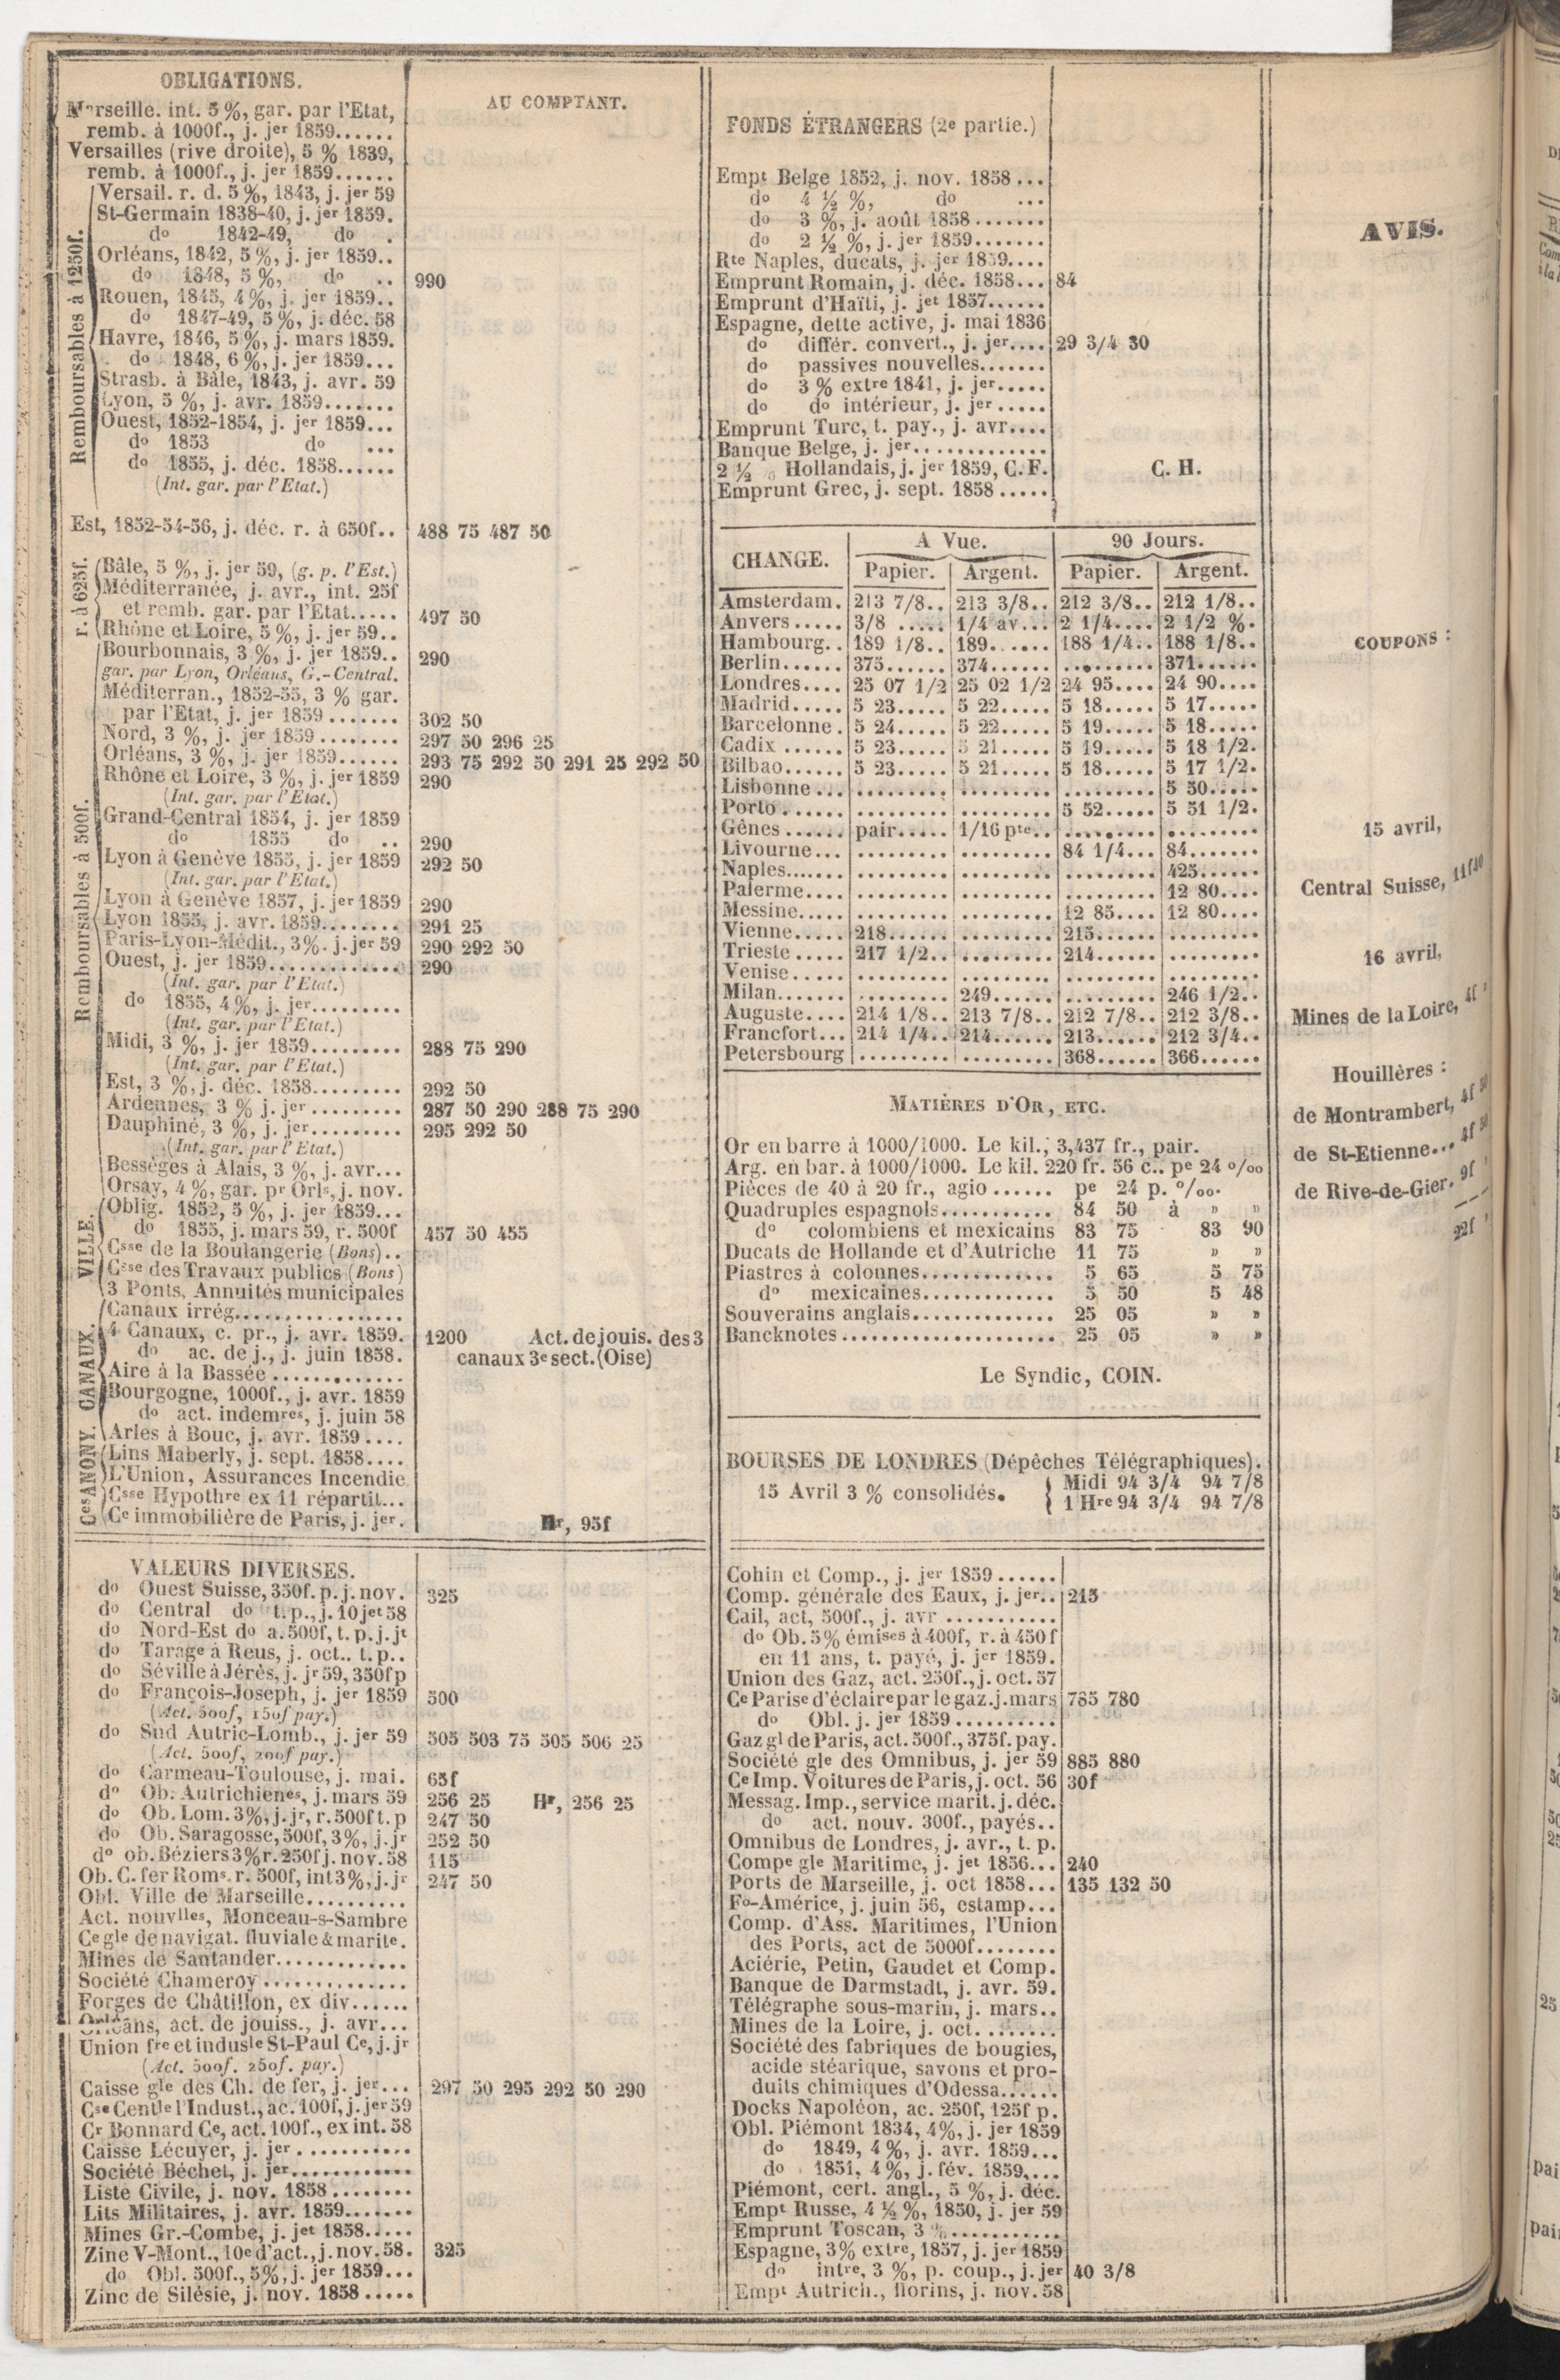 OBLIGATIONS.
AU COMPTANT.
Marseille. int. 5 %, gar. par l'Etat,
remb. à 1000f., j. jer 1859......
Versailles (rive droite), 5 % 1839,
remb. à 1000f., j. jer 1859......
Remboursables à 1250f.
Versail. r. d. 5 %, 1843, j. jer 59
St-Germain 1838-40, j. jer 1859.
do 1842-49, do .
Orléans, 1842, 5 %, j. jer 1859..
do 1848, 5 %, do .. 990
Rouen, 1845, 4 %, j. jer 1859..
do 1847-49, 5 %, j. déc. 58
Havre, 1846, 5 %, j. mars 1859.
do 1848, 6 %, j. jer 1859...
Strasb. à Bâle, 1843, j. avr. 59
Lyon, 5 %, j. avr. 1859.......
Ouest, 1852-1854, j. jer 1859...
do 1853 do ...
do 1855, j. déc. 1858......
(Int. gar. par l'Etat.)
Est, 1852-54-56, j. déc. r. à 650f.. 488 75 487 50
r. à 625f.
Bâle, 5 %, j. jer 59, (g. p. l'Est.)
Méditerranée, j. avr., int. 25f
et remb. gar. par l'Etat..... 497 50
Rhône et Loire, 5 %, j. jer 59..
Remboursables à 500f.
Bourbonnais, 3 %, j. jer 1859.. 290
gar. par Lyon, Orléans, G.-Central.
Méditerran., 1852-55, 3 % gar.
par l'Etat, j. jer 1859....... 302 50
Nord, 3 %, j. jer 1859........ 297 50 296 25
Orléans, 3 %, j. jer 1859...... 293 75 292 50 291 25 292 50
Rhône et Loire, 3 %, j. jer 1859 290
(Int. gar. par l'Etat.)
Grand-Central 1854, j. jer 1859
do 1855 do .. 290
Lyon à Genève 1855, j. jer 1859 292 50
(Int. gar. par l'Etat.)
Lyon à Genève 1857, j. jer 1859 290
Lyon 1855, j. avr. 1859........ 291 25
Paris-Lyon-Médit., 3%. j. jer 59 290 292 50
Ouest, j. jer 1859............. 290
(Int. gar. par l'Etat.)
do 1855, 4 %, j. jer.........
(Int. gar. par l'Etat.)
Midi, 3 %, j. jer 1859......... 288 75 290
(Int. gar. par l'Etat.)
Est, 3 %, j. déc. 1858......... 292 50
Ardennes, 3 % j. jer......... 287 50 290 288 75 290
Dauphiné, 3 %, j. jer......... 295 292 50
(Int. gar. par l'Etat.)
Bessèges à Alais, 3 %, j. avr...
Orsay, 4 %, gar. pr Orls, j. nov.
VILLE.
Oblig. 1852, 5 %, j. jer 1859...
do 1855, j. mars 59, r. 500f 457 50 455
Csse de la Boulangerie (Bons)..
Csse des Travaux publics (Bons)
3 Ponts, Annuités municipales
CANAUX.
Canaux irrég.................
4 Canaux, c. pr., j. avr. 1859. 1200 Act. de jouis. des 3
do ac. de j., j. juin 1858. canaux 3e sect. (Oise)
Aire à la Bassée.............
Bourgogne, 1000f., j. avr. 1859
do act. indemres, j. juin 58
Arles à Bouc, j. avr. 1859....
Ces ANONY.
Lins Maberly, j. sept. 1858....
L'Union, Assurances Incendie
Csse Hypothre ex 11 répartit...
Ce immobilière de Paris, j. jer. Hr, 95f
VALEURS DIVERSES.
do Ouest Suisse, 350f. p. j. nov. 325
do Central do t. p., j. 10 jet 58
do Nord-Est do a. 500f, t. p. j. jt
do Tarage à Reus, j. oct.. t. p..
do Séville à Jérès, j. jr 59, 350f p
do François-Joseph, j. jer 1859 500
(Act. 500f, 150f pay.)
do Sud Autric-Lomb., j. jer 59 505 503 75 505 506 25
(Act. 500f, 200f pay.)
do Carmeau-Toulouse, j. mai. 65f
do Ob. Autrichienes, j. mars 59 256 25 Hr, 256 25
do Ob. Lom. 3%, j. jr, r. 500f t. p 247 50
do Ob. Saragosse, 500f, 3%, j. jr 252 50
do ob. Béziers 3% r. 250f j. nov. 58 115
Ob. C. fer Roms. r. 500f, int 3%, j. jr 247 50
Obl. Ville de Marseille..........
Act. nouvlles, Monceau-s-Sambre
Ce gle de navigat. fluviale & marite.
Mines de Santander.............
Société Chameroy..............
Forges de Châtillon, ex div......
Orléans, act. de jouiss., j. avr...
Union fre et indusle St-Paul Ce, j. jr
(Act. 500f. 250f. pay.)
Caisse gle des Ch. de fer, j. jer... 297 50 295 292 50 290
Cse Centle l'Indust., ac. 100f, j. jer 59
Cr Bonnard Ce, act. 100f., ex int. 58
Caisse Lécuyer, j. jer...........
Société Béchet, j. jer............
Liste Civile, j. nov. 1858........
Lits Militaires, j. avr. 1859.......
Mines Gr.-Combe, j. jet 1858.....
Zinc V-Mont., 10e d'act., j. nov. 58. 325
do Obl. 500f., 5%, j. jer 1859...
Zinc de Silésie, j. nov. 1858.....
FONDS ÉTRANGERS (2e partie.)
Empt Belge 1852, j. nov. 1858...
do 4 ½ %, do ...
do 3 %, j. août 1858.......
do 2 ½ %, j. jer 1859.......
Rte Naples, ducats, j. jer 1859....
Emprunt Romain, j. déc. 1858... 84
Emprunt d'Haïti, j. jet 1857......
Espagne, dette active, j. mai 1836
do différ. convert., j. jer.... 29 3/4 30
do passives nouvelles.......
do 3 % extre 1841, j. jer.....
do do intérieur, j. jer.....
Emprunt Turc, t. pay., j. avr....
Banque Belge, j. jer.............
2 ½ % Hollandais, j. jer 1859, C. F. C. H.
Emprunt Grec, j. sept. 1858.....
CHANGE. A Vue. 90 Jours.
Papier. Argent. Papier. Argent.
Amsterdam. 213 7/8.. 213 3/8.. 212 3/8.. 212 1/8..
Anvers..... 3/8 ..... 1/4 av... 2 1/4.... 2 1/2 %.
Hambourg.. 189 1/8.. 189...... 188 1/4.. 188 1/8..
Berlin...... 375...... 374...... ......... 371......
Londres.... 25 07 1/2 25 02 1/2 24 95.... 24 90....
Madrid..... 5 23..... 5 22..... 5 18..... 5 17.....
Barcelonne. 5 24..... 5 22..... 5 19..... 5 18.....
Cadix...... 5 23..... 5 21..... 5 19..... 5 18 1/2.
Bilbao...... 5 23..... 5 21..... 5 18..... 5 17 1/2.
Lisbonne... ......... ......... ......... 5 50.....
Porto...... ......... ......... 5 52..... 5 51 1/2.
Gênes...... pair..... 1/16 pte.. ......... .........
Livourne... ......... ......... 84 1/4... 84.......
Naples....... ......... ......... ......... 425......
Palerme.... ......... ......... ......... 12 80....
Messine..... ......... ......... 12 85.... 12 80....
Vienne..... 218...... ......... 215...... .........
Trieste..... 217 1/2.. ......... 214...... .........
Venise..... ......... ......... ......... .........
Milan....... ......... 249...... ......... 246 1/2..
Auguste.... 214 1/8.. 213 7/8.. 212 7/8.. 212 3/8..
Francfort... 214 1/4.. 214...... 213...... 212 3/4..
Petersbourg ......... ......... 368...... 366......
MATIÈRES D'OR, ETC.
Or en barre à 1000/1000. Le kil., 3,437 fr., pair.
Arg. en bar. à 1000/1000. Le kil. 220 fr. 56 c.. pe 24 o/oo
Pièces de 40 à 20 fr., agio...... pe 24 p. o/oo.
Quadruples espagnols........... 84 50 à » »
do colombiens et mexicains 83 75 83 90
Ducats de Hollande et d'Autriche 11 75 » »
Piastres à colonnes............. 5 65 5 75
do mexicaines............. 5 50 5 48
Souverains anglais.............. 25 05 » »
Bancknotes..................... 25 05 » »
Le Syndic, COIN.
BOURSES DE LONDRES (Dépêches Télégraphiques).
15 Avril 3 % consolidés.
Midi 94 3/4 94 7/8
1 Hre 94 3/4 94 7/8
Cohin et Comp., j. jer 1859......
Comp. générale des Eaux, j. jer.. 215
Cail, act, 500f., j. avr...........
do Ob. 5% émises à 400f, r. à 450f
en 11 ans, t. payé, j. jer 1859.
Union des Gaz, act. 250f., j. oct. 57
Ce Parise d'éclaire par le gaz. j. mars 785 780
do Obl. j. jer 1859..........
Gaz gl de Paris, act. 500f., 375f. pay.
Société gle des Omnibus, j. jer 59 885 880
Ce Imp. Voitures de Paris, j. oct. 56 30f
Messag. Imp., service marit. j. déc.
do act. nouv. 300f., payés..
Omnibus de Londres, j. avr., t. p.
Compe gle Maritime, j. jet 1856... 240
Ports de Marseille, j. oct 1858... 135 132 50
Fo-Américe, j. juin 56, estamp...
Comp. d'Ass. Maritimes, l'Union
des Ports, act de 5000f........
Aciérie, Petin, Gaudet et Comp.
Banque de Darmstadt, j. avr. 59.
Télégraphe sous-marin, j. mars..
Mines de la Loire, j. oct........
Société des fabriques de bougies,
acide stéarique, savons et pro-
duits chimiques d'Odessa......
Docks Napoléon, ac. 250f, 125f p.
Obl. Piémont 1834, 4%, j. jer 1859
do 1849, 4 %, j. avr. 1859...
do 1851, 4 %, j. fév. 1859....
Piémont, cert. angl., 5 %, j. déc.
Empt Russe, 4 ½ %, 1850, j. jer 59
Emprunt Toscan, 3 %...........
Espagne, 3% extre, 1857, j. jer 1859
do intre, 3 %, p. coup., j. jer 40 3/8
Empt Autrich., florins, j. nov. 58
AVIS.
COUPONS :
15 avril,
Central Suisse, 11f 40
16 avril,
Mines de la Loire, 4f »
Houillères :
de Montrambert, 4f 50
de St-Etienne... 4f 50
de Rive-de-Gier. 9f »
22f »